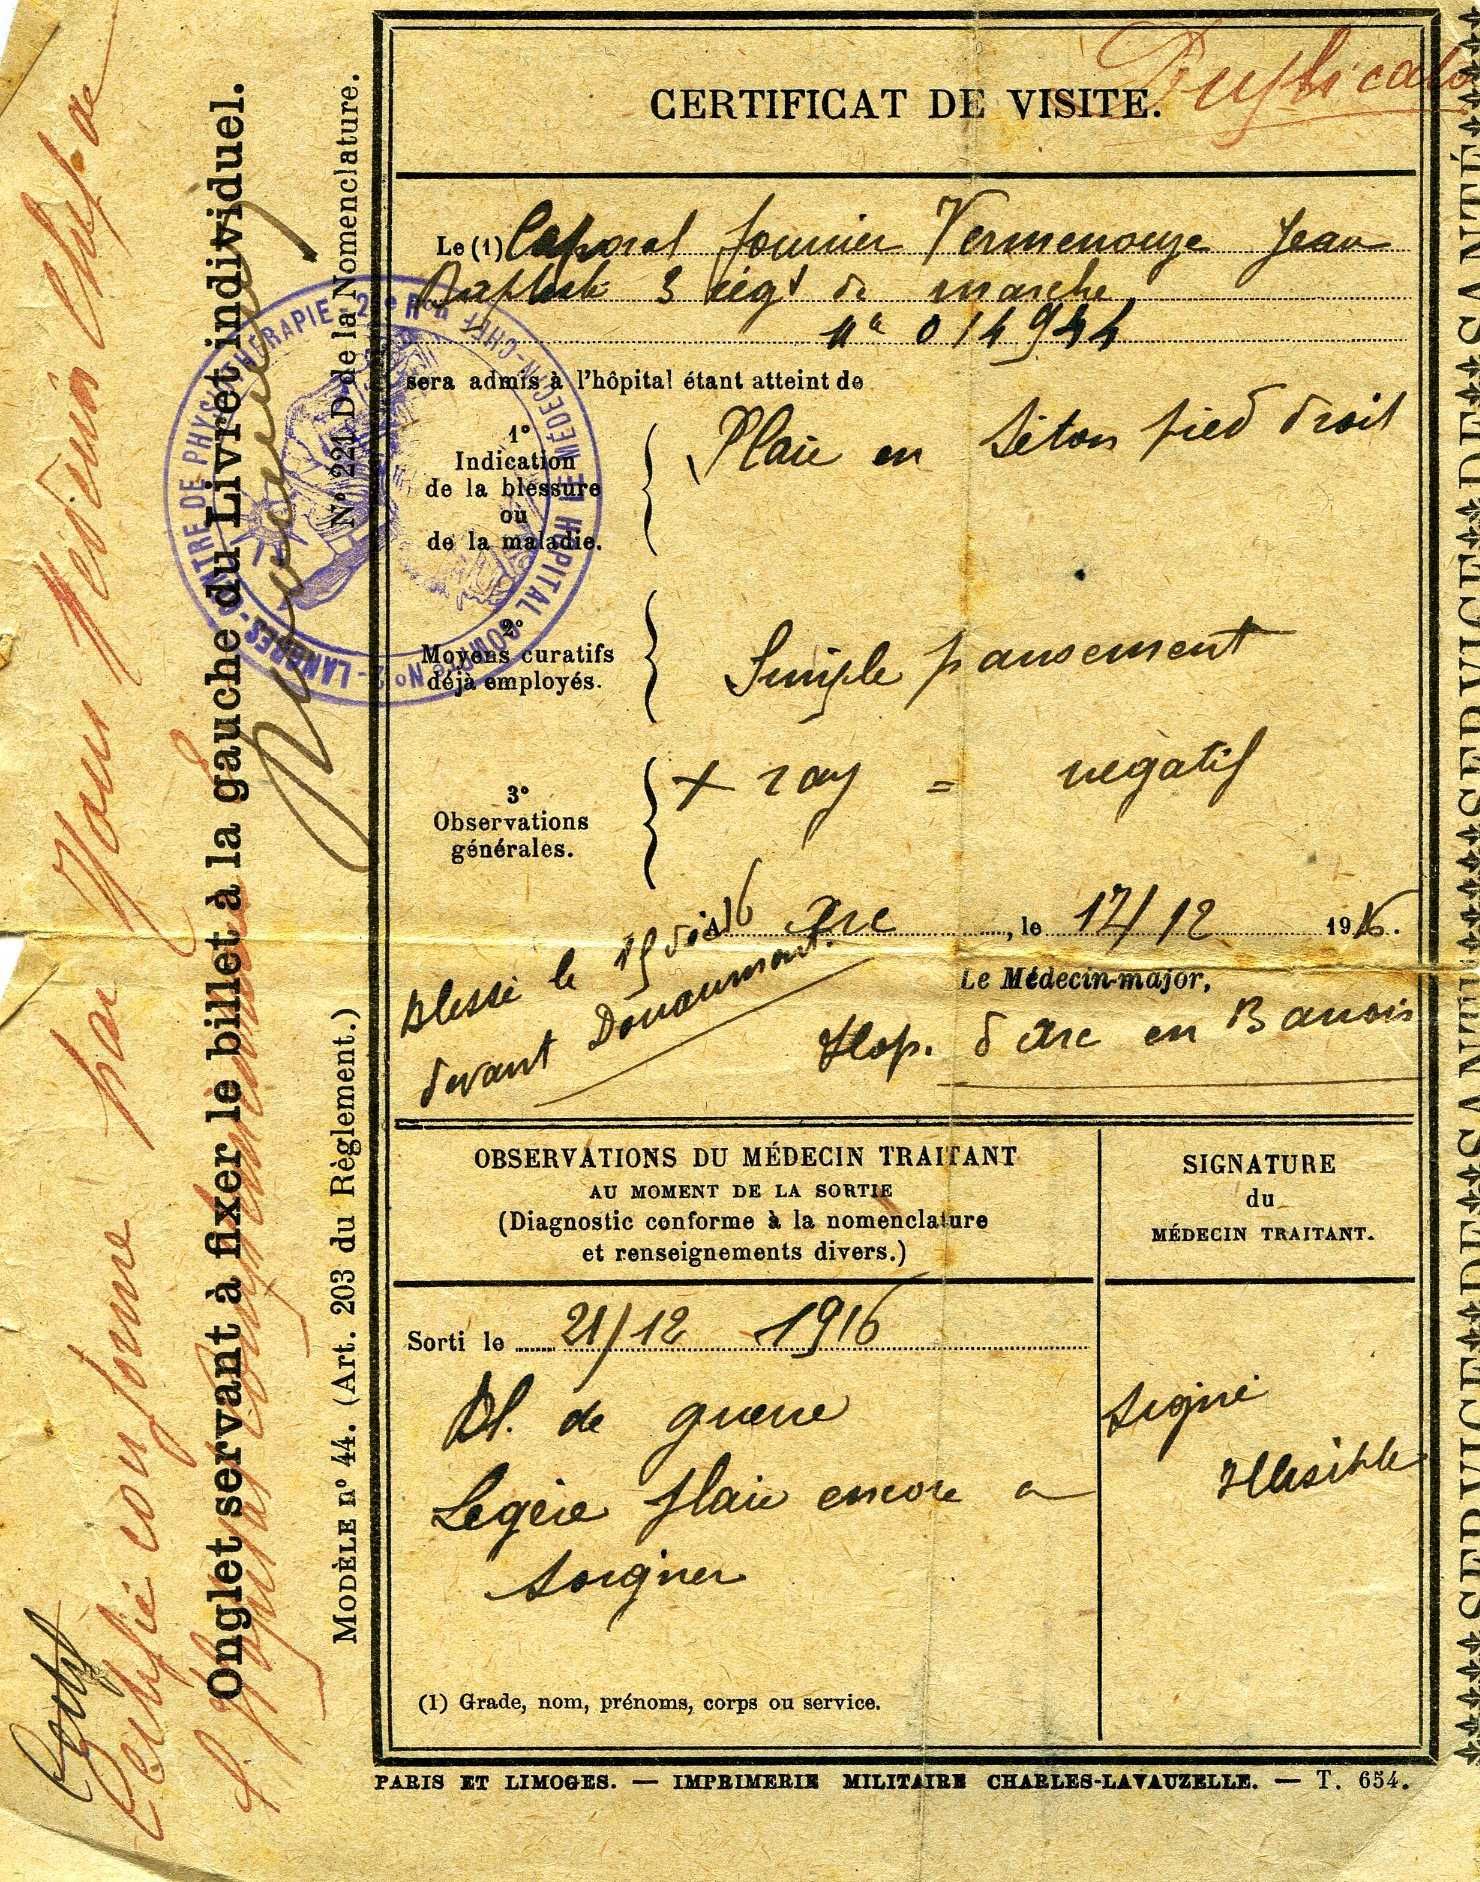 CERTIFICAT DE VISITE.
Duplicata
Le (1) Caporal fourrier Vermenouze Jean
Baptiste 3 régt de marche
n° 014944
sera admis à l'hôpital étant atteint de
1°
Indication
de la blessure
ou
de la maladie.
Plaie en Séton pied droit
2°
Moyens curatifs
déjà employés.
Simple pansement
3°
Observations
générales.
X ray = négatif
A Arc, le 17/12 1916.
Blessé le 15 déc 16
devant Douaumont.
Le Médecin-major,
Hop. d'Arc en Barrois
OBSERVATIONS DU MÉDECIN TRAITANT
AU MOMENT DE LA SORTIE
(Diagnostic conforme à la nomenclature
et renseignements divers.)
SIGNATURE
du
MÉDECIN TRAITANT.
Sorti le 21/12 1916
Bl. de guerre
Légère plaie encore a
soigner
signé
Illisible
(1) Grade, nom, prénoms, corps ou service.
PARIS ET LIMOGES. — IMPRIMERIE MILITAIRE CHARLES-LAVAUZELLE. — T. 654.
MODÈLE n° 44. (Art. 203 du Règlement.)
N° 221 D de la Nomenclature.
Onglet servant à fixer le billet à la gauche du Livret individuel.
Certifié conforme par Nous Médecin Chef de
l'Hôpital
CENTRE DE PHYSIOTHÉRAPIE
LE MÉDECIN-CHEF
HOPITAL N° 2 - LANGRES
SERVICE DE SANTÉ SERVICE DE SANTÉ